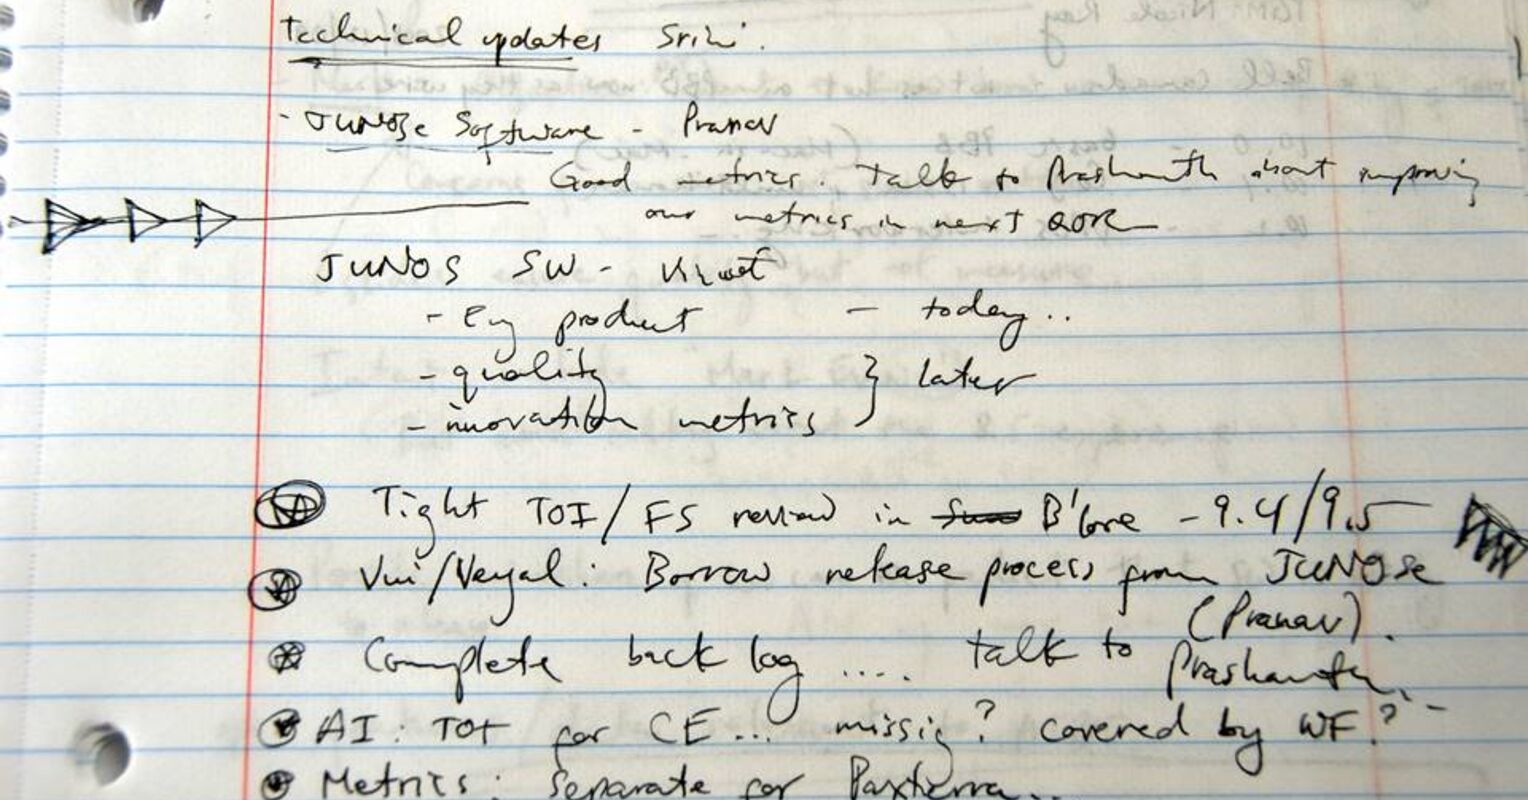 Technical updates Srini.
- JUNOSe Software - Pranav
Good metrics. Talk to Prashanth about improving
our metrics in next QOR
JUNOS SW - Vineet
- Eng product - today..
- quality } Later
- innovation metrics
Tight TOI/FS review in B'lore - 9.4/9.5
/Veyal: Borrow release process from JUNOSe
(Pranav).
Complete back log .... talk to Prashanth.
AI: TOI for CE... missig? covered by WF?
Metrics: Separate for Paxterra..